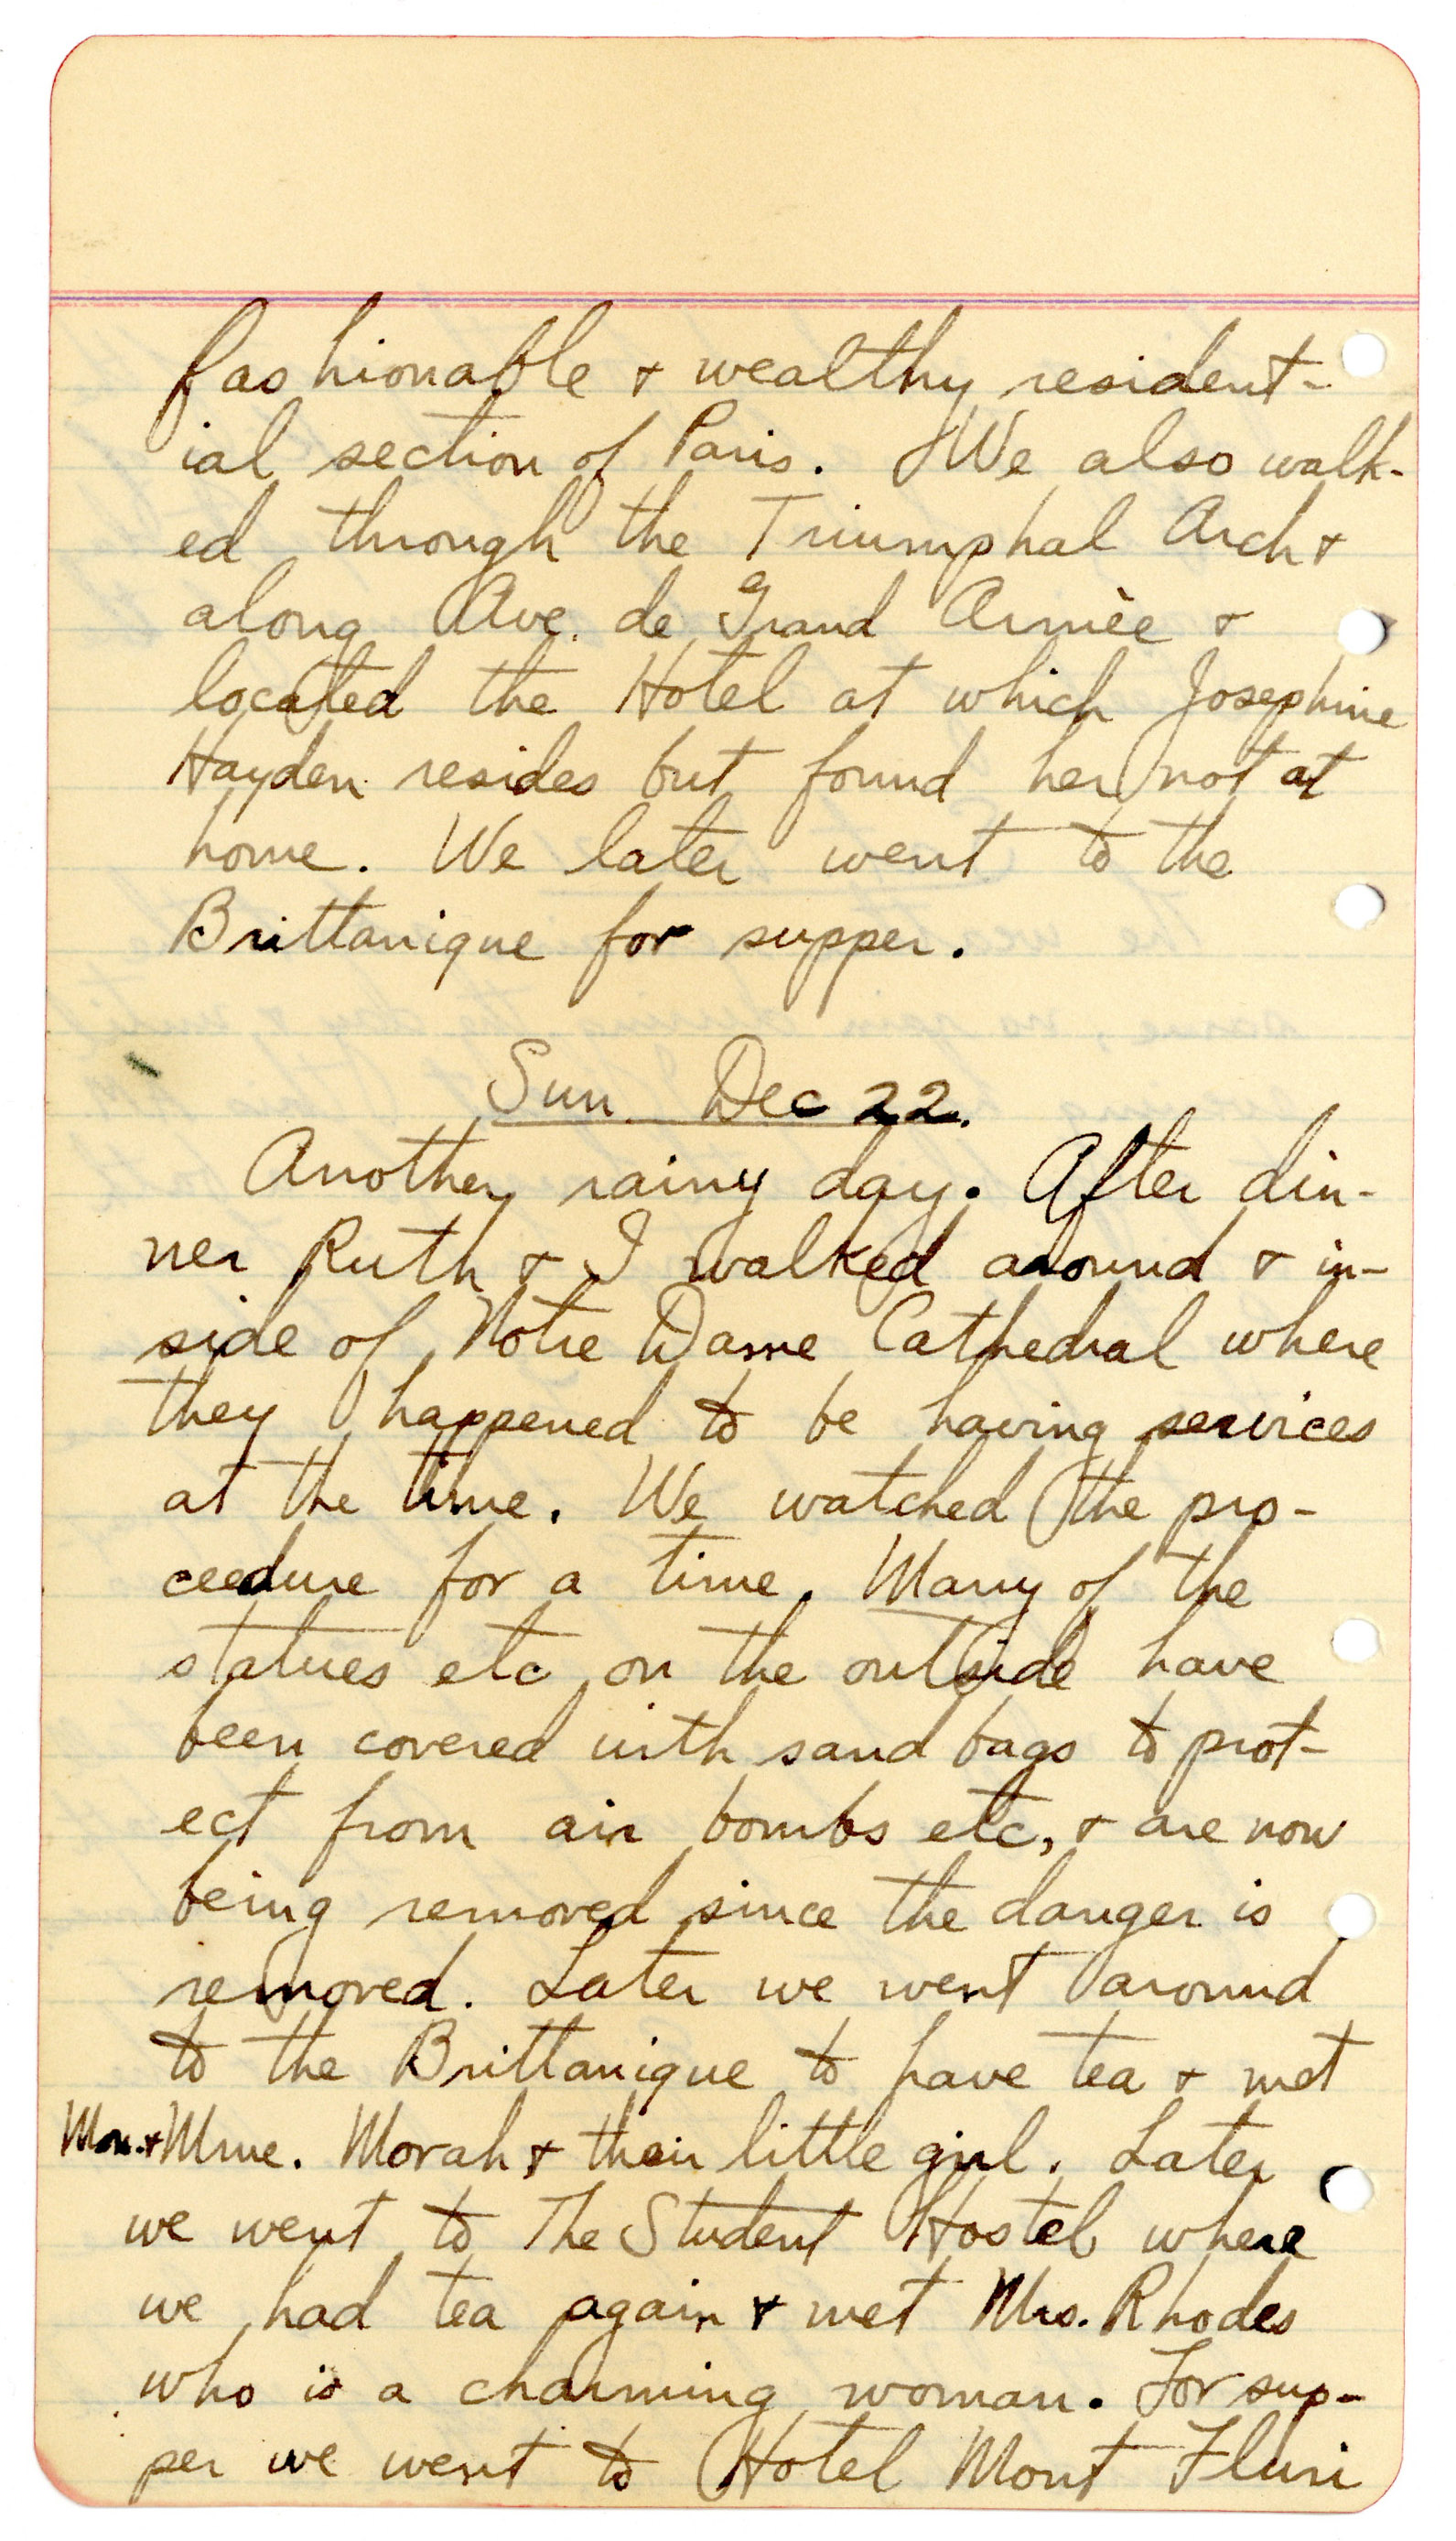 fashionable + wealthy resident-
ial section of Paris. We also walk-
ed through the Triumphal Arch +
along Ave. de Grand Armèe +
located the Hotel at which Josephine
Hayden resides but found her not at
home. We later went to the
Brittanique for supper.
Sun. Dec 22.
Another rainy day. After din-
ner Ruth + I walked around + in-
side of Notre Dame Cathedral where
they happened to be having services
at the time. We watched the pro-
ceedure for a time. Many of the
statues etc on the outside have
been covered with sand bags to prot-
ect from air bombs etc, + are now
being removed since the danger is
removed. Later we went around
to the Brittanique to have tea + met
Mon. + Mme. Morah + their little girl. Later
we went to The Student Hostel where
we had tea again + met Mrs. Rhodes
who is a charming woman. For sup-
per we went to Hotel Mont Fluri